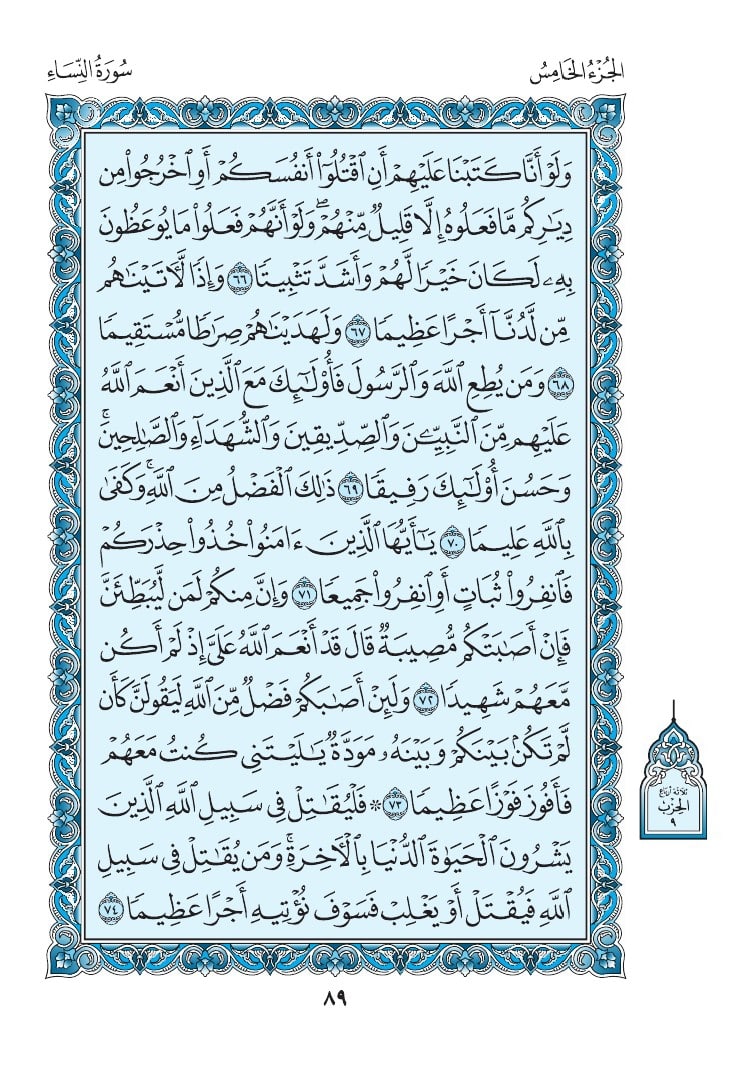 الجُزْءُ الخَامِسُ
سُورَةُ النِّسَاءِ
وَلَوْ أَنَّا كَتَبْنَا عَلَيْهِمْ أَنِ ٱقْتُلُوٓا۟ أَنفُسَكُمْ أَوِ ٱخْرُجُوا۟ مِن
دِيَٰرِكُم مَّا فَعَلُوهُ إِلَّا قَلِيلٌ مِّنْهُمْ ۖ وَلَوْ أَنَّهُمْ فَعَلُوا۟ مَا يُوعَظُونَ
بِهِۦ لَكَانَ خَيْرًا لَّهُمْ وَأَشَدَّ تَثْبِيتًا ٦٦ وَإِذًا لَّءَاتَيْنَٰهُم
مِّن لَّدُنَّآ أَجْرًا عَظِيمًا ٦٧ وَلَهَدَيْنَٰهُمْ صِرَٰطًا مُّسْتَقِيمًا
٦٨ وَمَن يُطِعِ ٱللَّهَ وَٱلرَّسُولَ فَأُو۟لَٰٓئِكَ مَعَ ٱلَّذِينَ أَنْعَمَ ٱللَّهُ
عَلَيْهِم مِّنَ ٱلنَّبِيِّـۧنَ وَٱلصِّدِّيقِينَ وَٱلشُّهَدَآءِ وَٱلصَّٰلِحِينَ ۚ
وَحَسُنَ أُو۟لَٰٓئِكَ رَفِيقًا ٦٩ ذَٰلِكَ ٱلْفَضْلُ مِنَ ٱللَّهِ ۚ وَكَفَىٰ
بِٱللَّهِ عَلِيمًا ٧٠ يَٰٓأَيُّهَا ٱلَّذِينَ ءَامَنُوا۟ خُذُوا۟ حِذْرَكُمْ
فَٱنفِرُوا۟ ثُبَاتٍ أَوِ ٱنفِرُوا۟ جَمِيعًا ٧١ وَإِنَّ مِنكُمْ لَمَن لَّيُبَطِّئَنَّ
فَإِنْ أَصَٰبَتْكُم مُّصِيبَةٌ قَالَ قَدْ أَنْعَمَ ٱللَّهُ عَلَىَّ إِذْ لَمْ أَكُن
مَّعَهُمْ شَهِيدًا ٧٢ وَلَئِنْ أَصَٰبَكُمْ فَضْلٌ مِّنَ ٱللَّهِ لَيَقُولَنَّ كَأَن
لَّمْ تَكُنۢ بَيْنَكُمْ وَبَيْنَهُۥ مَوَدَّةٌ يَٰلَيْتَنِى كُنتُ مَعَهُمْ
فَأَفُوزَ فَوْزًا عَظِيمًا ٧٣ ۞ فَلْيُقَٰتِلْ فِى سَبِيلِ ٱللَّهِ ٱلَّذِينَ
يَشْرُونَ ٱلْحَيَوٰةَ ٱلدُّنْيَا بِٱلْءَاخِرَةِ ۚ وَمَن يُقَٰتِلْ فِى سَبِيلِ
ٱللَّهِ فَيُقْتَلْ أَوْ يَغْلِبْ فَسَوْفَ نُؤْتِيهِ أَجْرًا عَظِيمًا ٧٤
ثلاثة أرباع
الحزب
٩
٨٩